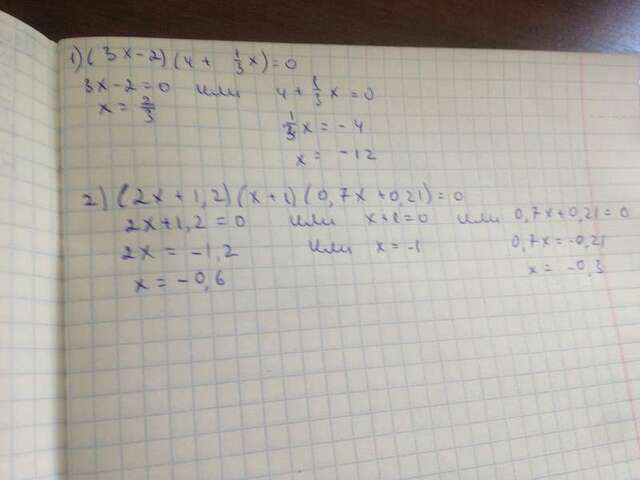 1) (3x-2)(4+ 1/3 x)=0
3x-2=0 или 4+ 1/3 x=0
x = 2/3 1/3 x = -4
x = -12
2) (2x+1,2)(x+1)(0,7x+0,21)=0
2x+1,2=0 или x+1=0 или 0,7x+0,21=0
2x = -1,2 или x=-1 0,7x=-0,21
x = -0,6 x = -0,3